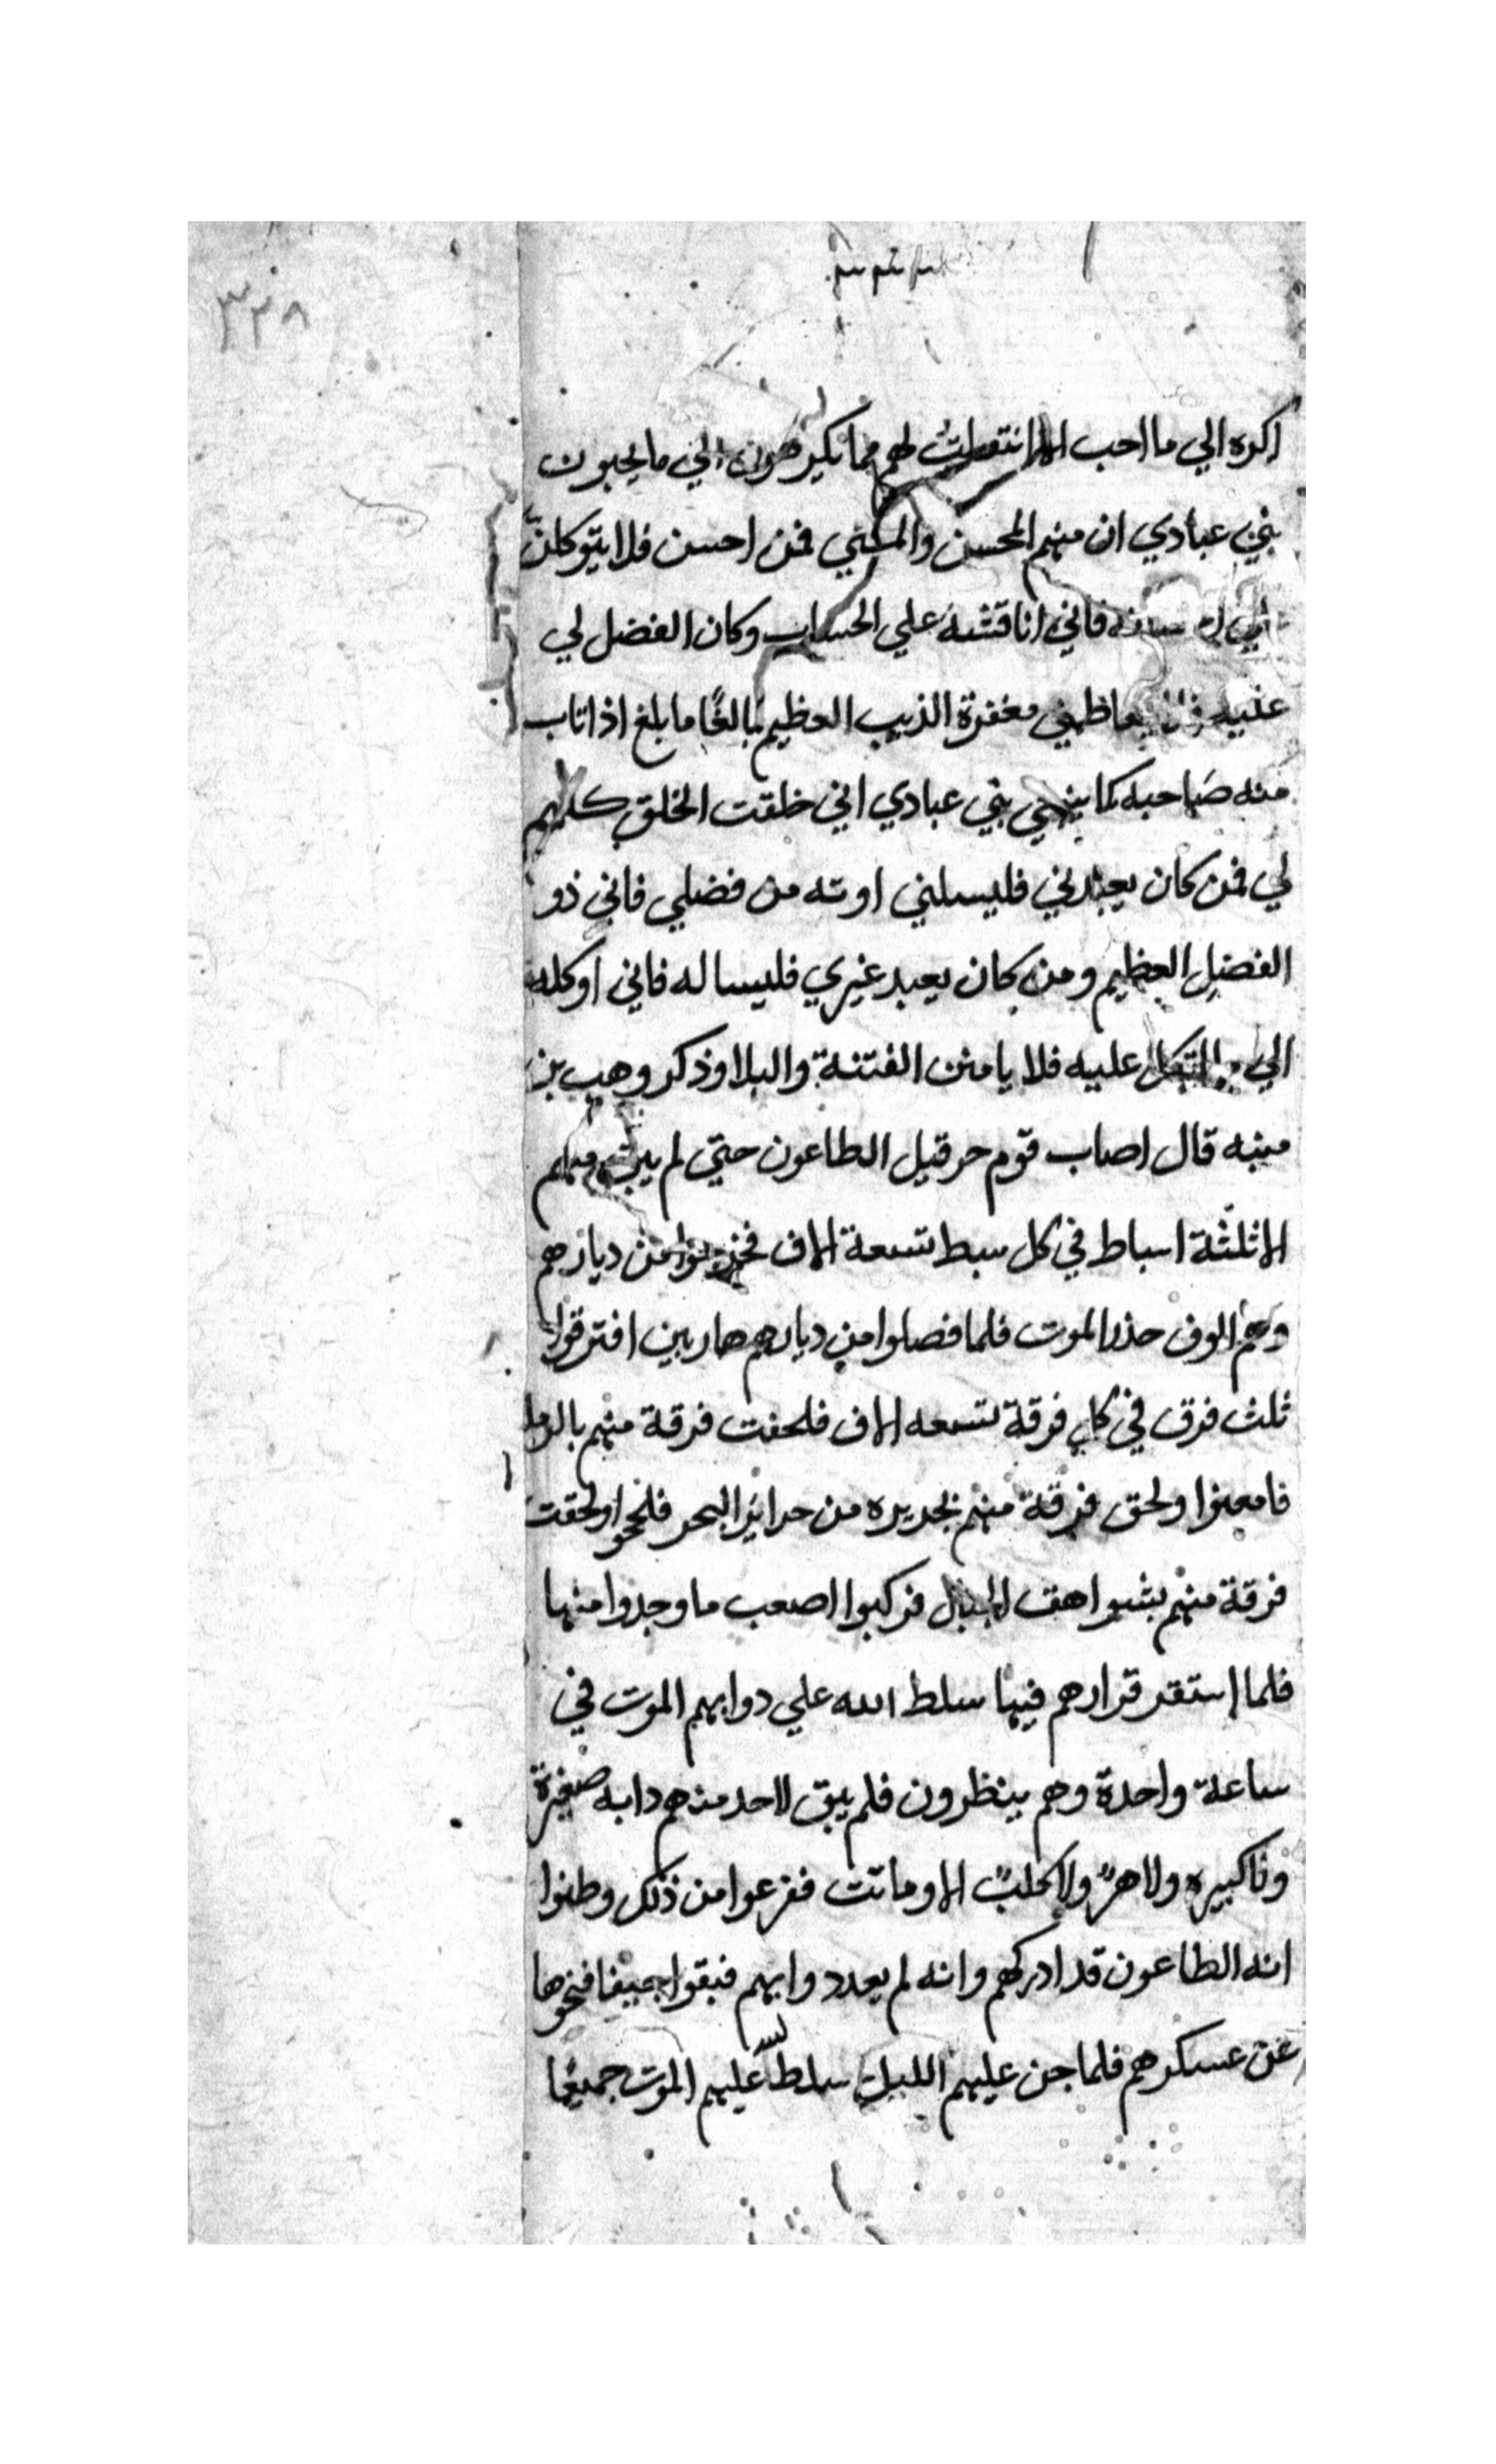 ٣٢٨
اكره الي ما احب الا انتقلت لهم مما يكرهون الي ما يحبون
بني عبادي ان منهم المحسن والمسي فمن احسن فلا يتوكلن
فاني اناقشه علي الحساب وكان الفضل لي
عليه مغفرة الذنب العظيم بالغًا ما بلغ اذا تاب
منه صاحبه كما ينبغي بني عبادي اني خلقت الخلق كلهم
لي فمن كان يعبدني فليسلني اوته من فضلي فاني ذو
الفضل العظيم ومن كان يعبد غيري فليساله فاني اوكله
الي عليه فلا يامنن الفتنة والبلا وذكر وهب بن
منبه قال اصاب قوم حرقيل الطاعون حتي لم يبق منهم
الا ثلثة اسباط في كل سبط تسعة الاف فخرجوا من ديارهم
وهم الوف حذر الموت فلما فصلوا من ديارهم هاربين افترقوا
ثلث فرق في كل فرقة تسعه الاف فلحقت فرقة منهم بالرمل
فامعنوا ولحق فرقة منهم بجزيره من جزاير البحر فلججوا ولحقت
فرقة منهم بشواهق الجبال فركبوا اصعب ما وجدوا منها
فلما استقر قرارهم فيها سلط الله علي دوابهم الموت في
ساعة واحدة وهم ينظرون فلم يبق لاحد منهم دابه صغيرة
ولا كبيره ولا هرً ولا كلبً الا وماتت ففزعوا من ذلك وظنوا
انه الطاعون قد ادركهم وانه لم يعد دوابهم فبقوا جيفا فنحوها
عن عسكرهم فلما جن عليهم الليل سلط الله عليهم الموت جميعًا